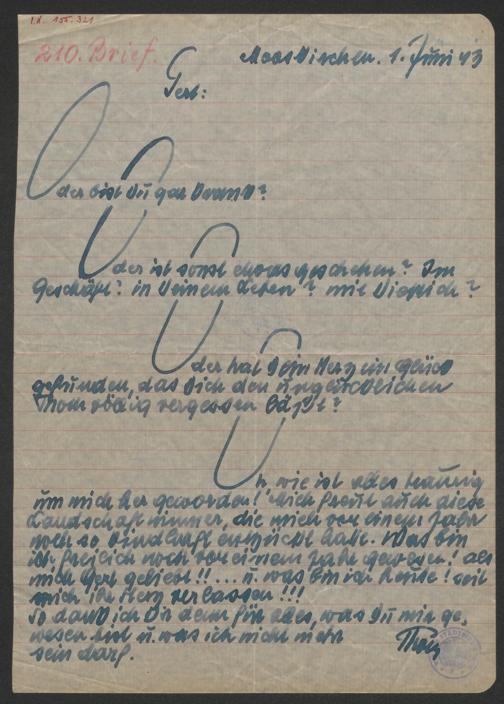 I.N. 155.321
210. Brief.
Mooskirchen. 1. Juni 43
Gert:
Oder bist Du gar krank?
Oder ist sonst etwas geschehen? Im
Geschäft? in Deinem Leben? mit Dietrich?
Oder hat Dein Herz ein Glück
gefunden, das Dich den unglücklichen
Thom völlig vergessen läßt?
O, wie ist alles traurig
um mich her geworden! Mich freut auch diese
Landschaft nimmer, die mich vor einem Jahr
noch so kindhaft entzückt hatt. Was bin
ich freilich noch vor einem Jahr gewesen! als
mich Gert geliebt!! ... u. was bin ich heute! seit
mich ihr Herz verlassen!!!
So dank ich Dir denn für alles, was Du mir ge,
wesen bist u. was ich nicht mehr
sein darf.
Thom